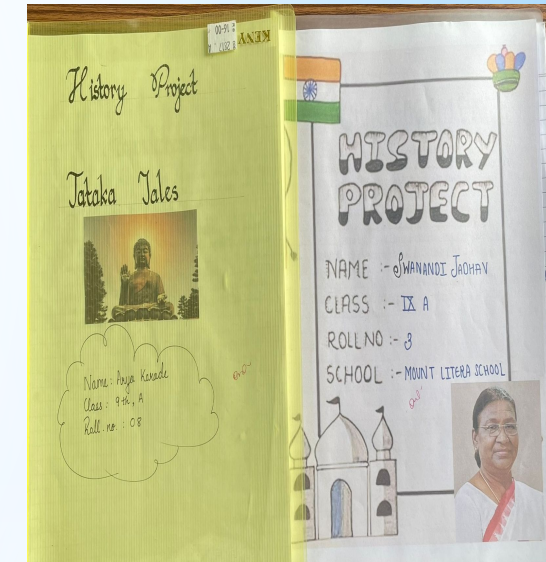 History Project
Jataka Tales
Name: Arya Karade
Class: 9th, A
Roll. no. : 08
HISTORY
PROJECT
NAME :- SWANANDI JADHAV
CLASS :- IX A
ROLL NO :- 3
SCHOOL :- MOUNT LITERA SCHOOL